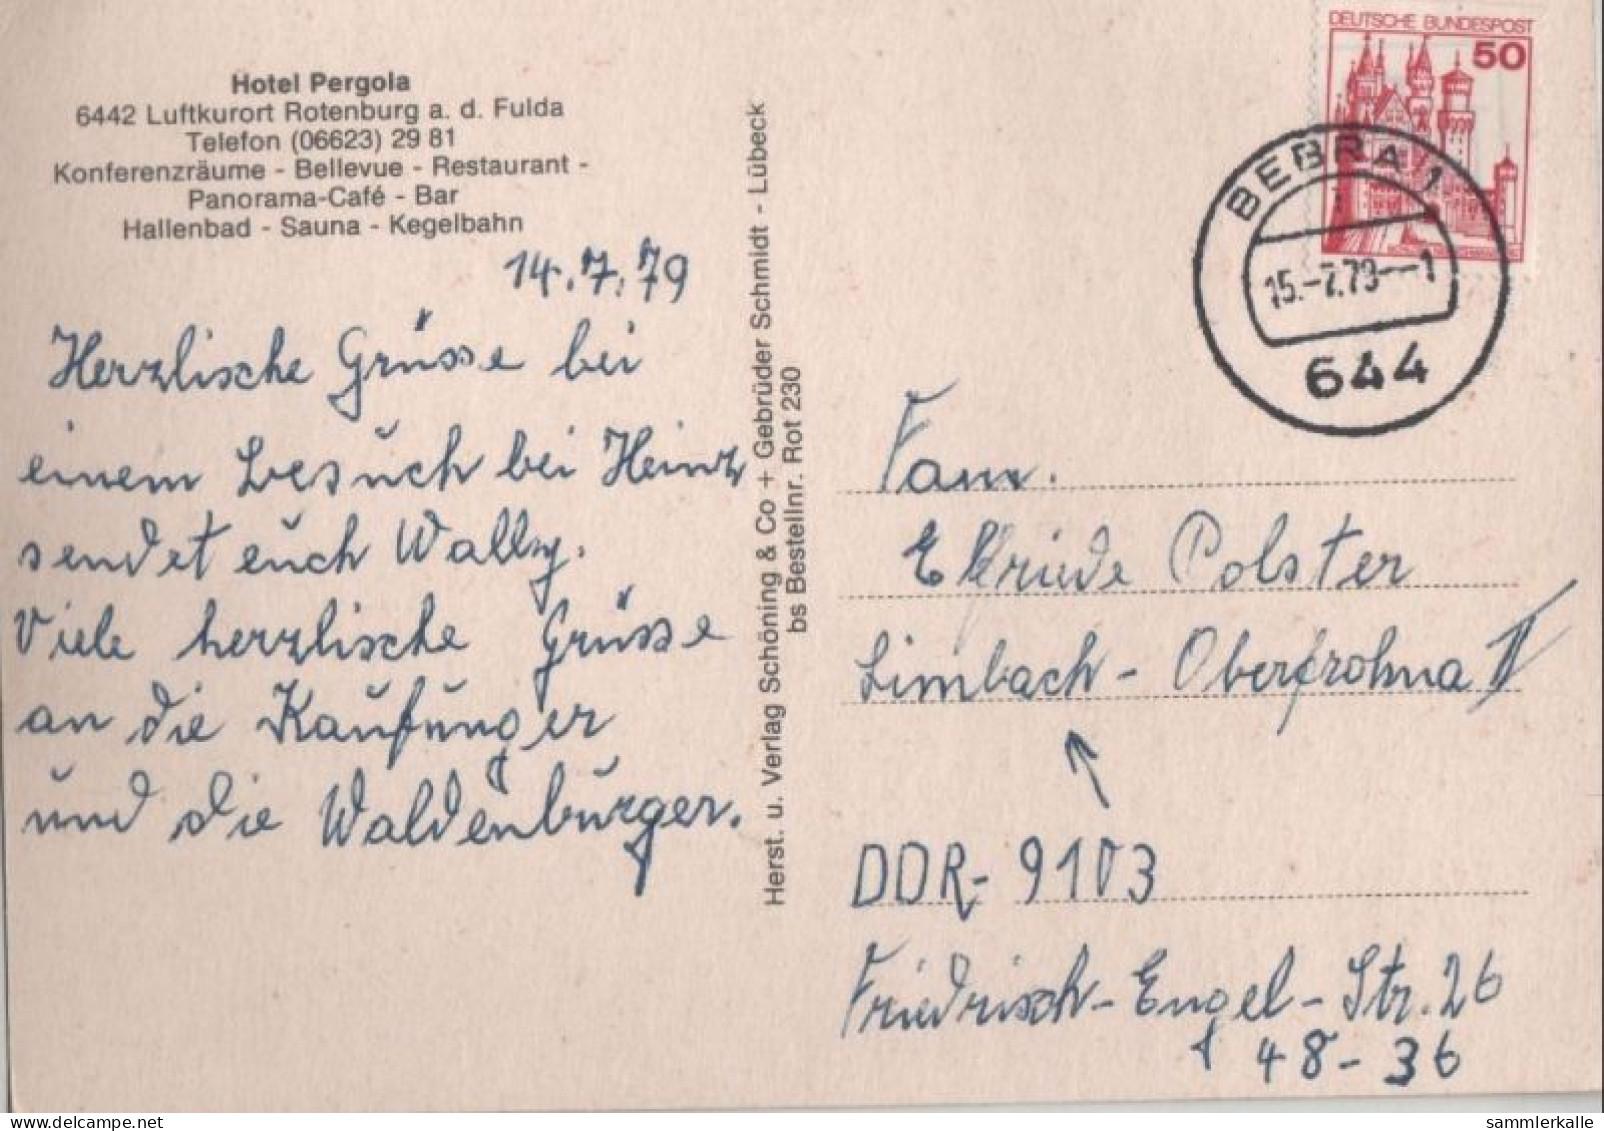 Hotel Pergola
6442 Luftkurort Rotenburg a. d. Fulda
Telefon (06623) 29 81
Konferenzräume - Bellevue - Restaurant -
Panorama-Café - Bar
Hallenbad - Sauna - Kegelbahn
14.7.79
Herzlische Grüsse bei
einem Besuch bei Heinz
sendet euch Wally.
Viele herzlische Grüsse
an die Kaufunger
und die Waldenburger.
Herst. u. Verlag Schöning & Co + Gebrüder Schmidt - Lübeck
bs Bestellnr. Rot 230
DEUTSCHE BUNDESPOST
50
BEBRA 1
15.-7.79--1
644
Fam.
Elfriede Polster
Limbach - Oberfrohna II
DDR- 9103
Friedrisch-Engel-Str. 26
48-36
sammlerkalle